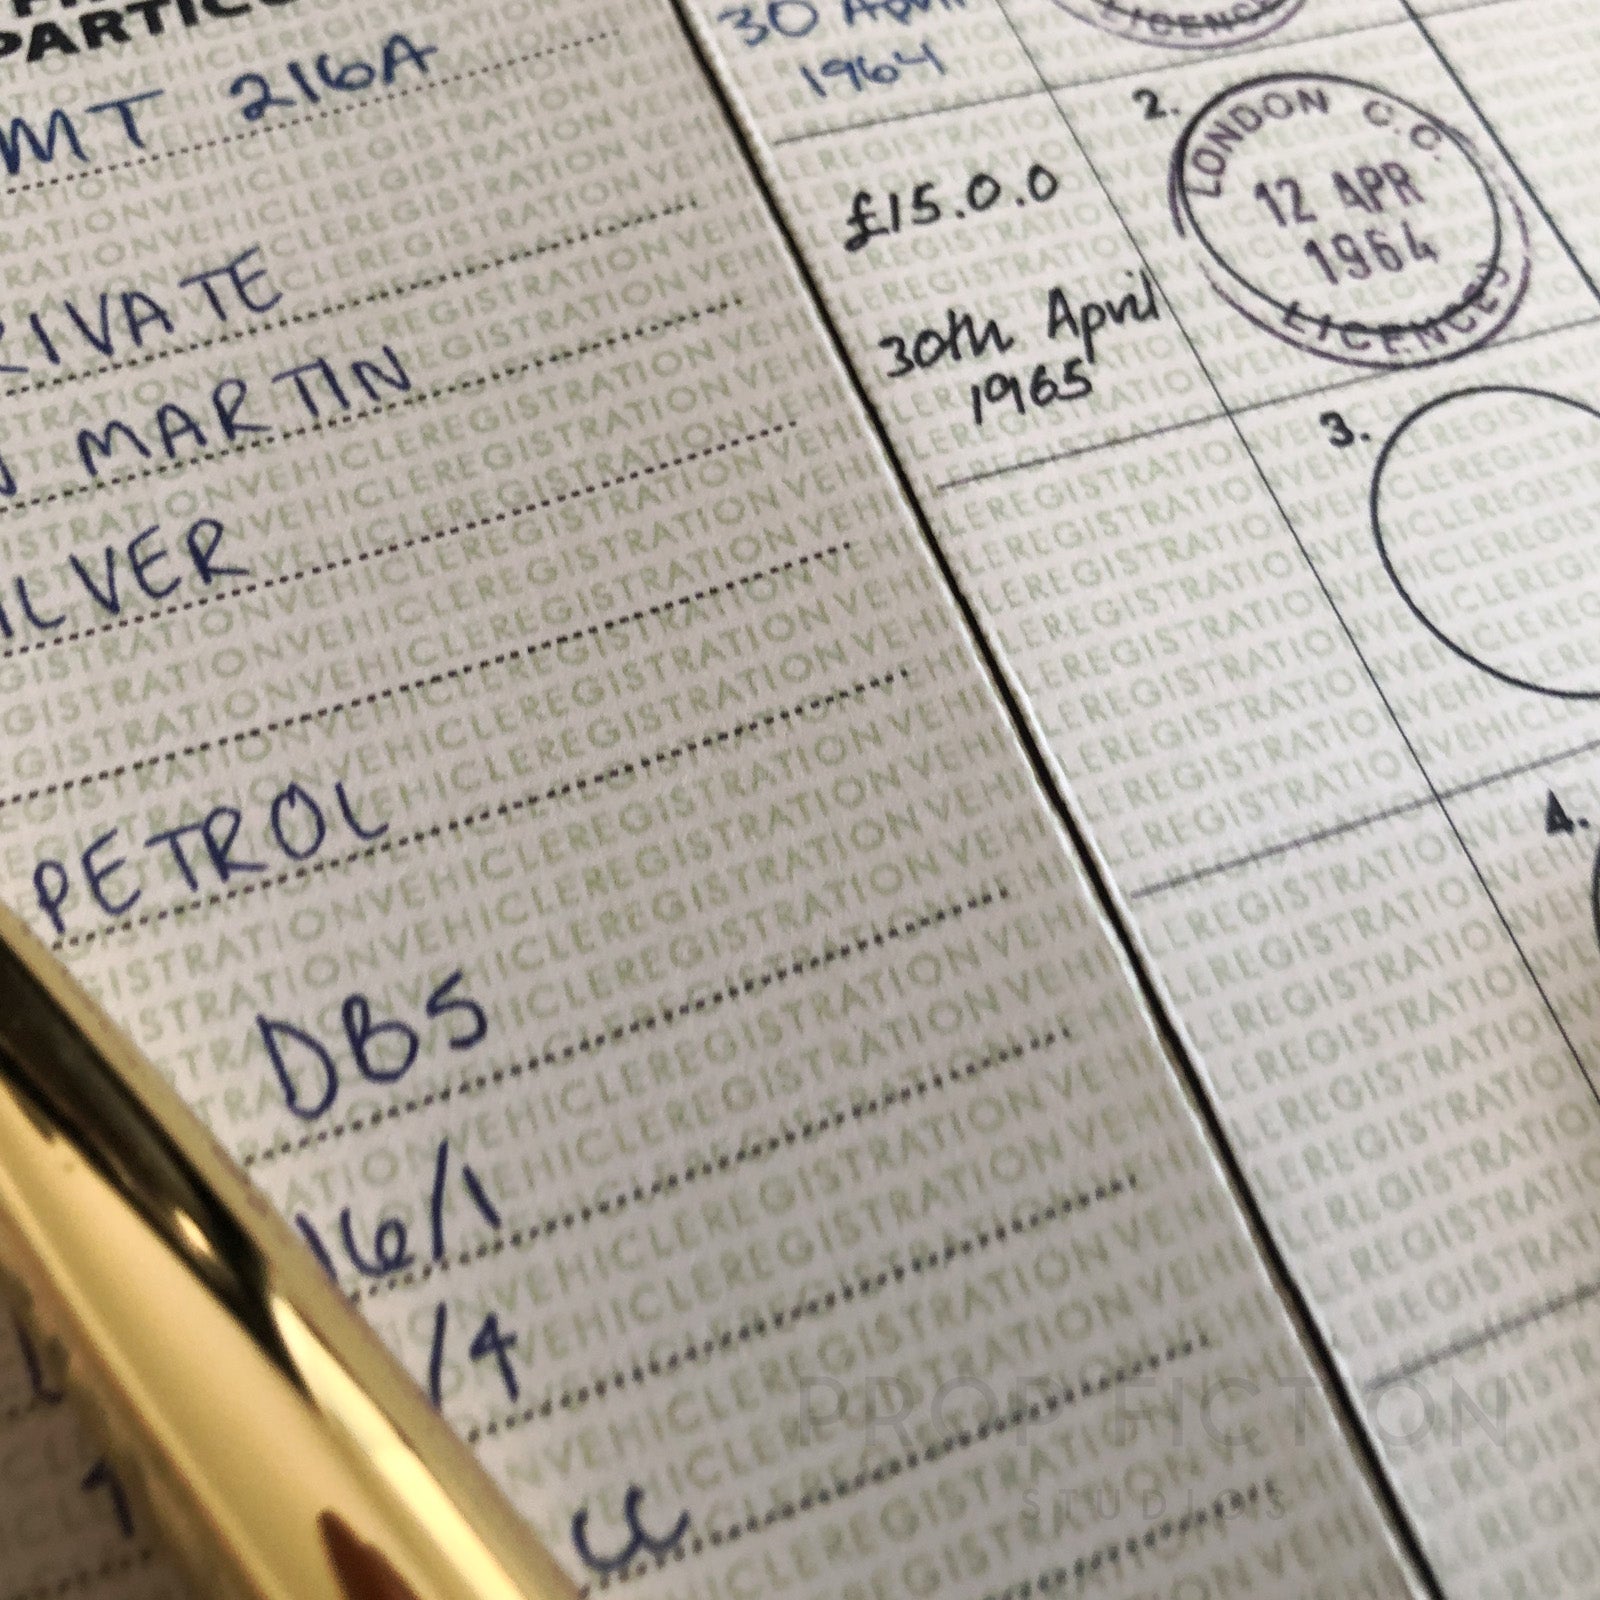 PARTIC
MT 216A
RIVATE
MARTIN
ILVER
PETROL
DB5
16/1
/4
cc
30 April
1964
LICENCE
2.
LONDON C.C.
12 APR
1964
LICENCES
£15.0.0
30th April
1965
3.
4.
PROP FICTION
STUDIOS